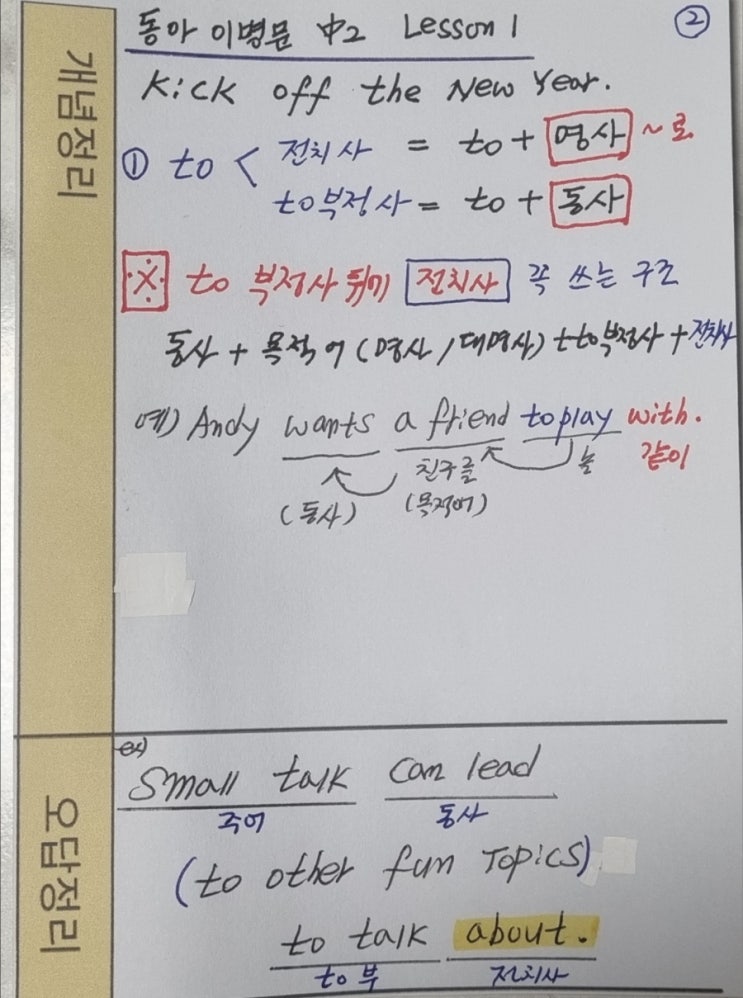 개념정리
동아 이병문 中2 Lesson 1 ②
Kick off the New Year.
① to < 전치사 = to + 명사 ~로
to부정사 = to + 동사
※ to 부정사 뒤에 전치사 꼭 쓰는 구조
동사 + 목적어 (명사 / 대명사) + to부정사 + 전치사
예) Andy wants a friend to play with.
친구를 놀 같이
(동사) (목적어)
오답정리
ex)
Small talk can lead
주어 동사
(to other fun Topics)
to talk about.
to 부 전치사